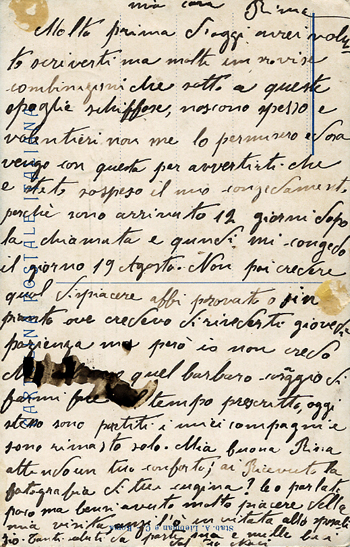 mia cara Rina
Molto prima d'oggi avrei volu-
to scriverti ma molte improvvise
combinazioni che sotto a queste
spoglie schiffose, nascono spesso e
volentieri non me lo permisero. Ora
vengo con questa per avvertirti che
e stato sospeso il mio congedamento
perchè sono arrivato 12 giorni dopo
la chiamata e quindi mi congedo
il giorno 19 Agosto. Non poi credere
qual dispiacere abbi provato o sin
presto ove credevo di rivederti giovedì
pazienza ma però io non credo
quel barbaro coraggio di
farmi tempo prescritto, oggi
stesso sono partiti i miei compagni e
sono rimasto solo. Mia buona Rina
attendo un tuo conforto, ai Ricevuto la
fotografia di tua cugina? le o parlato
poco ma benzi averto molto piacere della
mia visita
Tanti saluti da parte mia e mille baci
CARTOLINA POSTALE ITALIANA